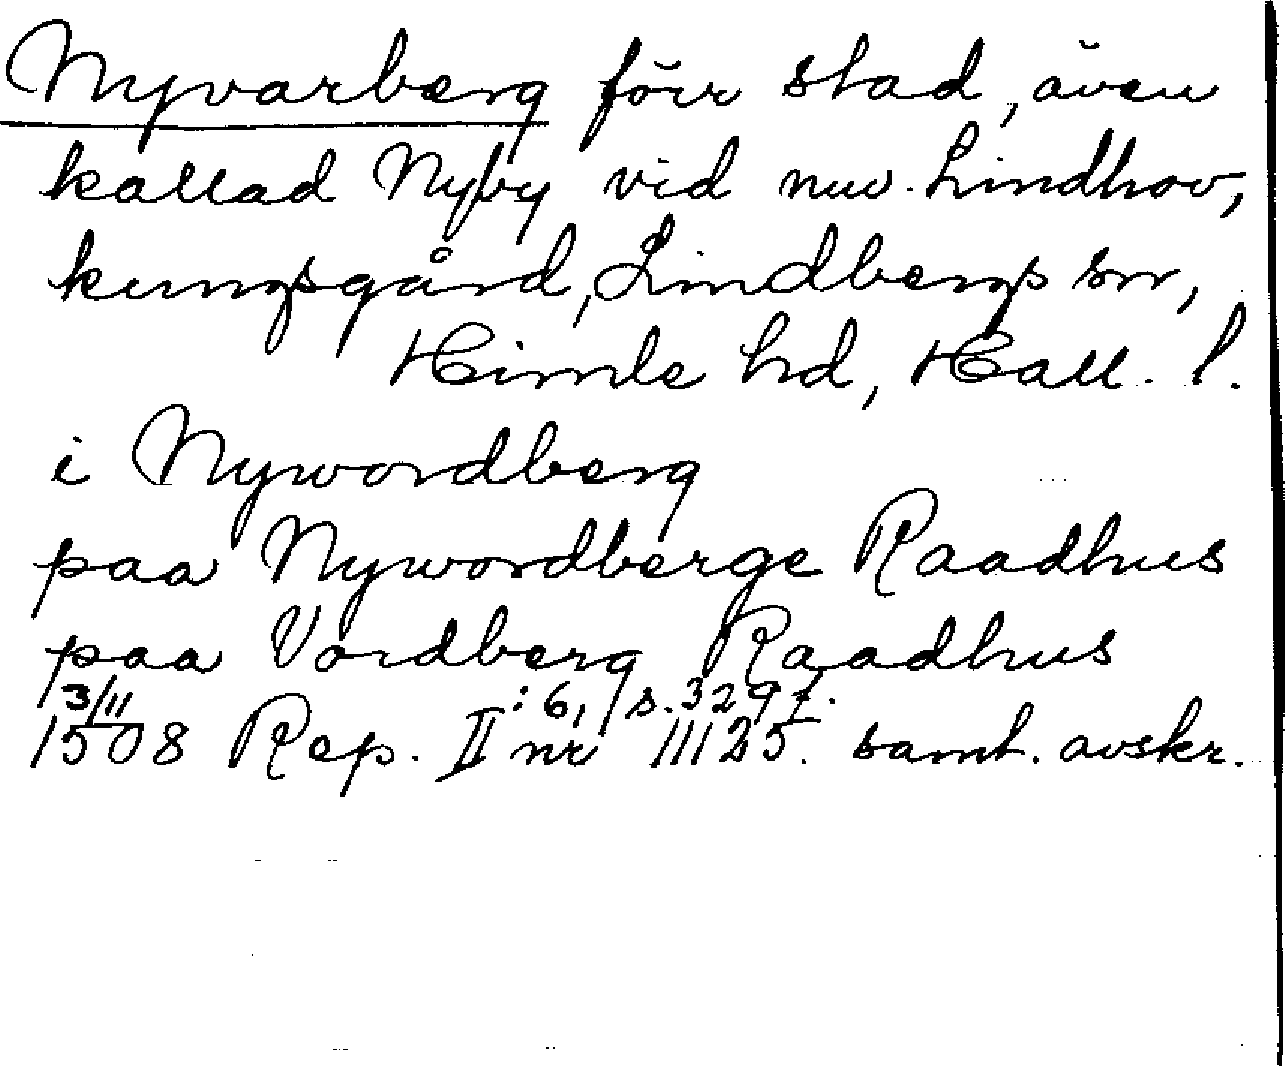 Nyvarberg förr stad, även
kallad Nyby vid nuv. Lindhov,
kungsgård, Lindbergs sn,
Himle hd, Hall. l.
i Nywordberg
paa Nywordberge Raadhus
paa Vordberg Raadhus
3/11 :6, s. 329 f.
1508 Rep. II nr 11125. samt. avskr.